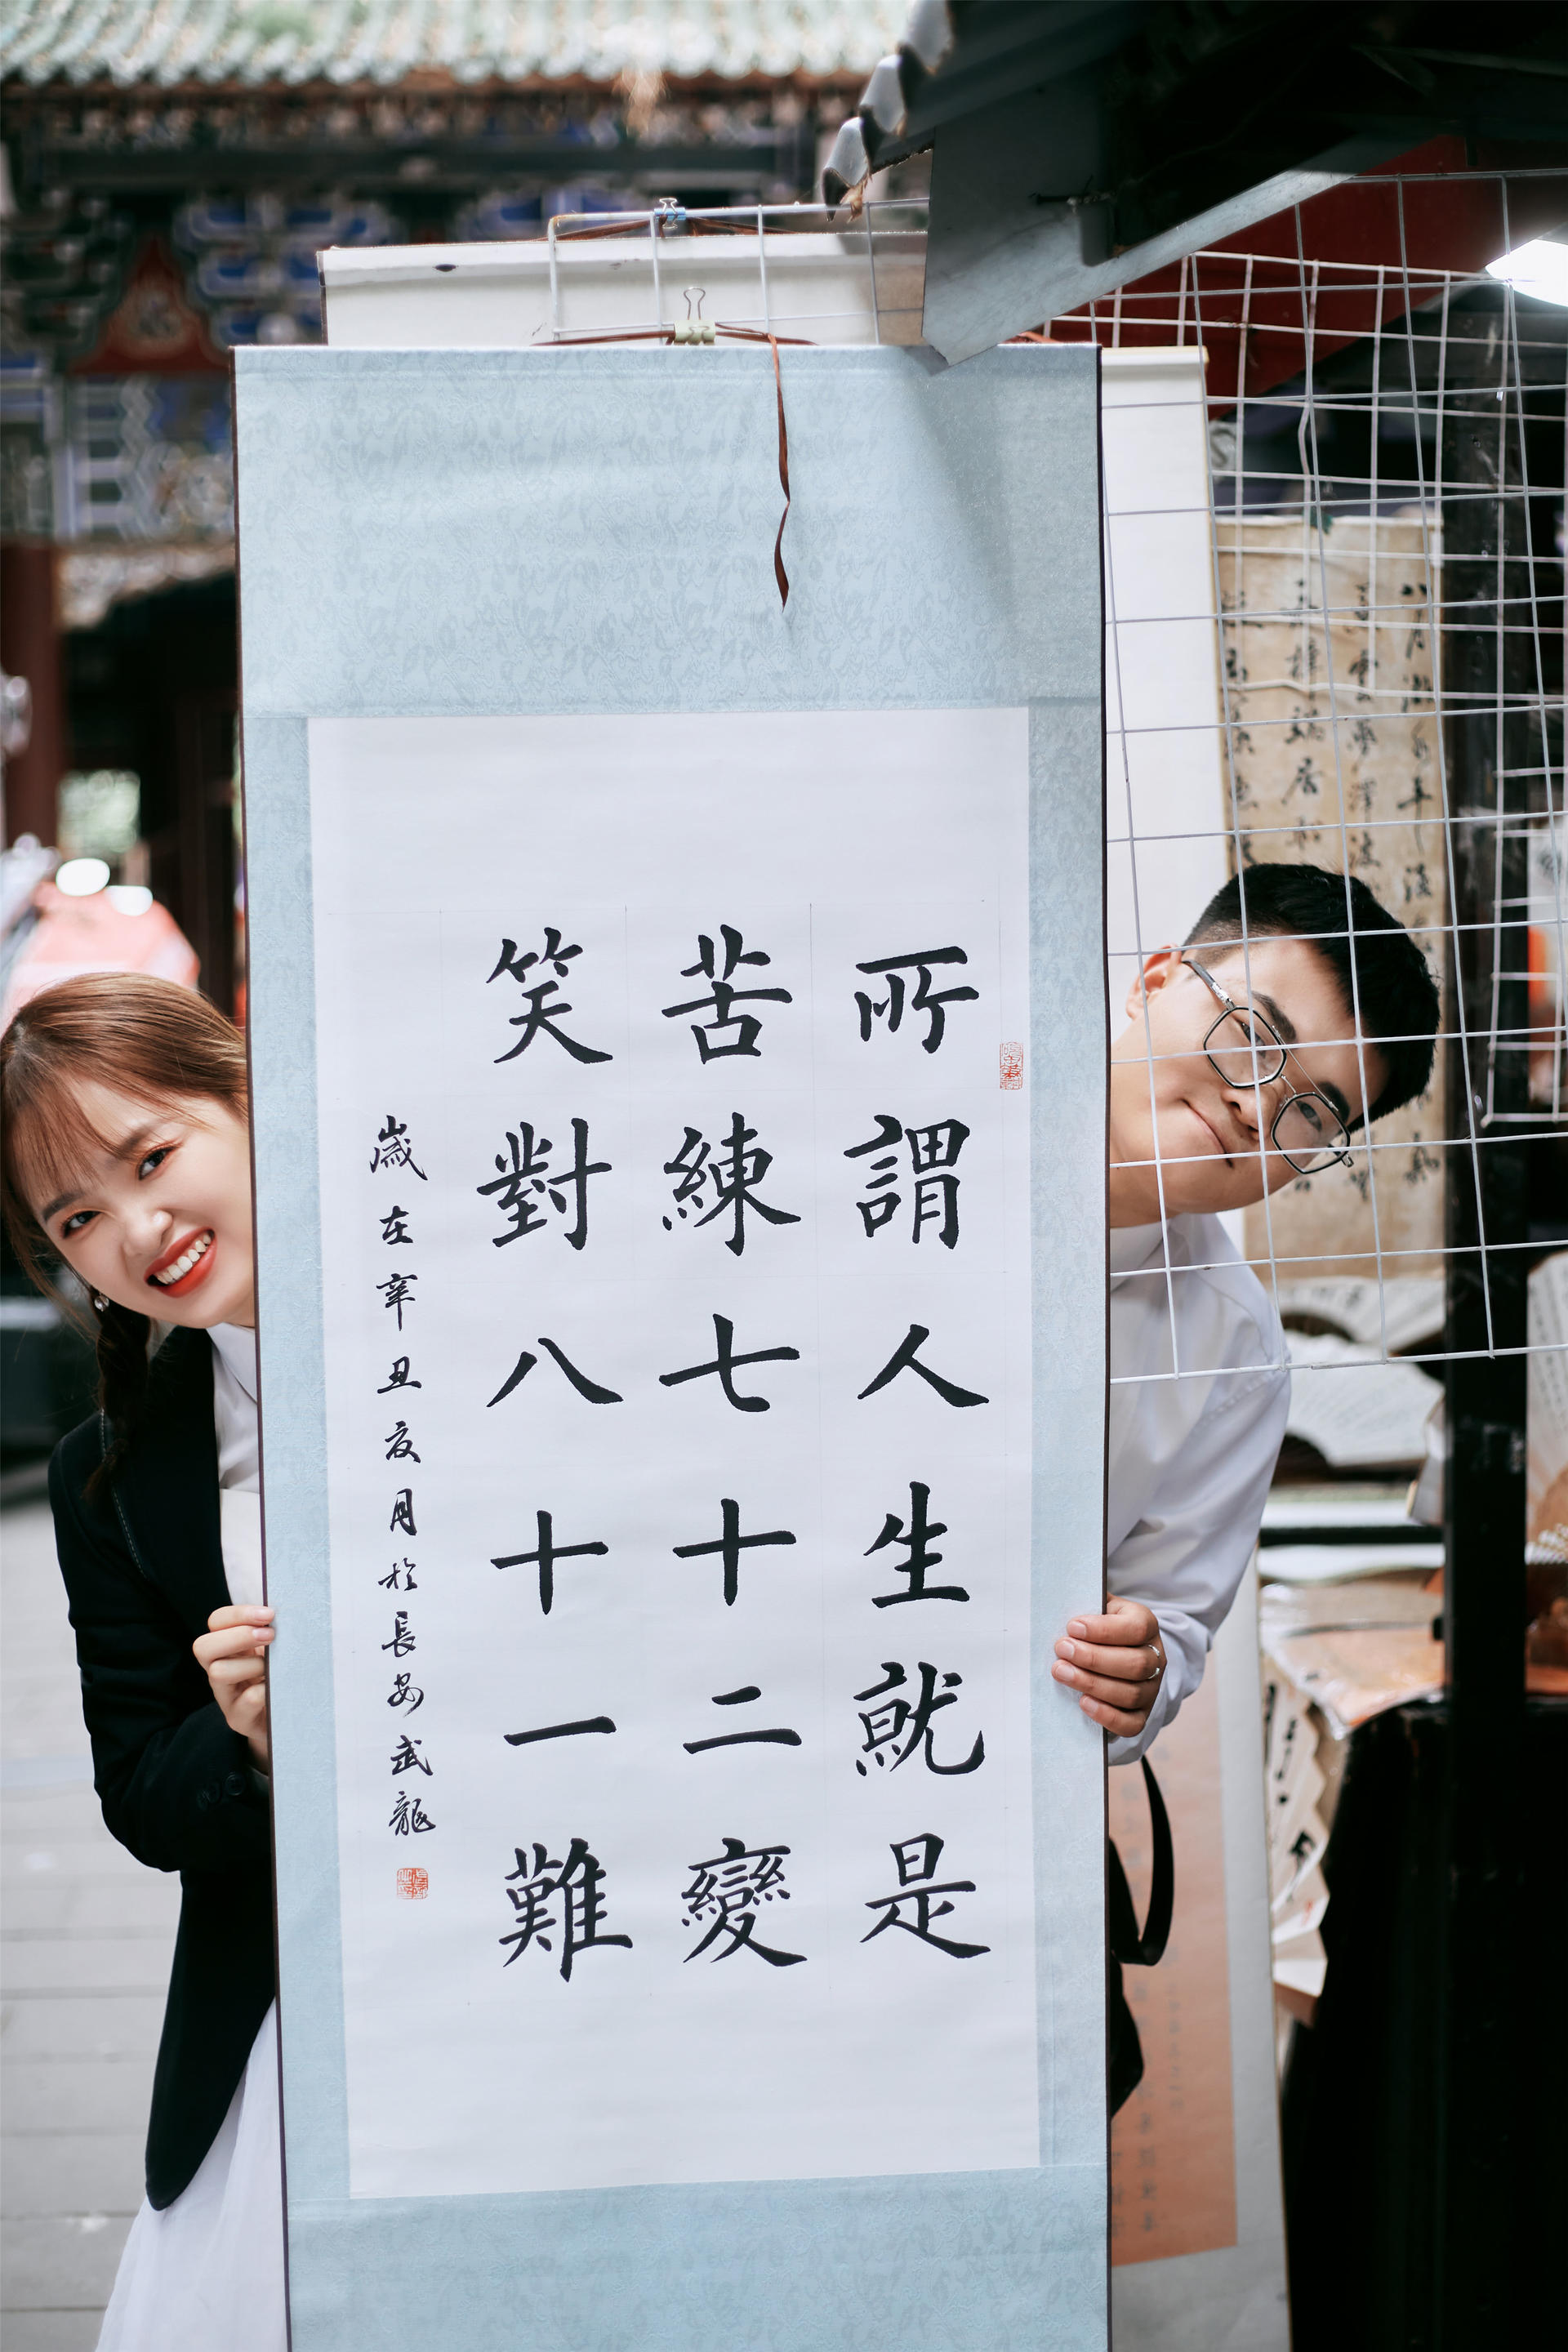 所謂人生就是
苦練七十二變
笑對八十一難
歲在辛丑夏月於長安武龍